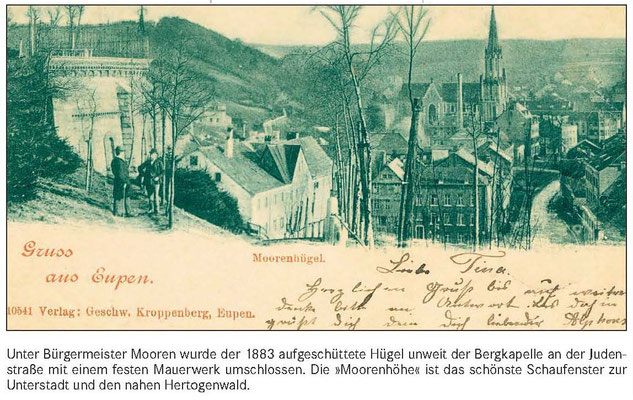 Gruss
aus Eupen.
Moorenhügel.
Liebe Tina.
Herzlichen Gruß bis auf weiter
denke bitte an Antwort. Das doch in
grüßt dich dem dich liebender Alphons
10541 Verlag: Geschw. Kroppenberg, Eupen.
Unter Bürgermeister Mooren wurde der 1883 aufgeschüttete Hügel unweit der Bergkapelle an der Juden-
straße mit einem festen Mauerwerk umschlossen. Die »Moorenhöhe« ist das schönste Schaufenster zur
Unterstadt und den nahen Hertogenwald.